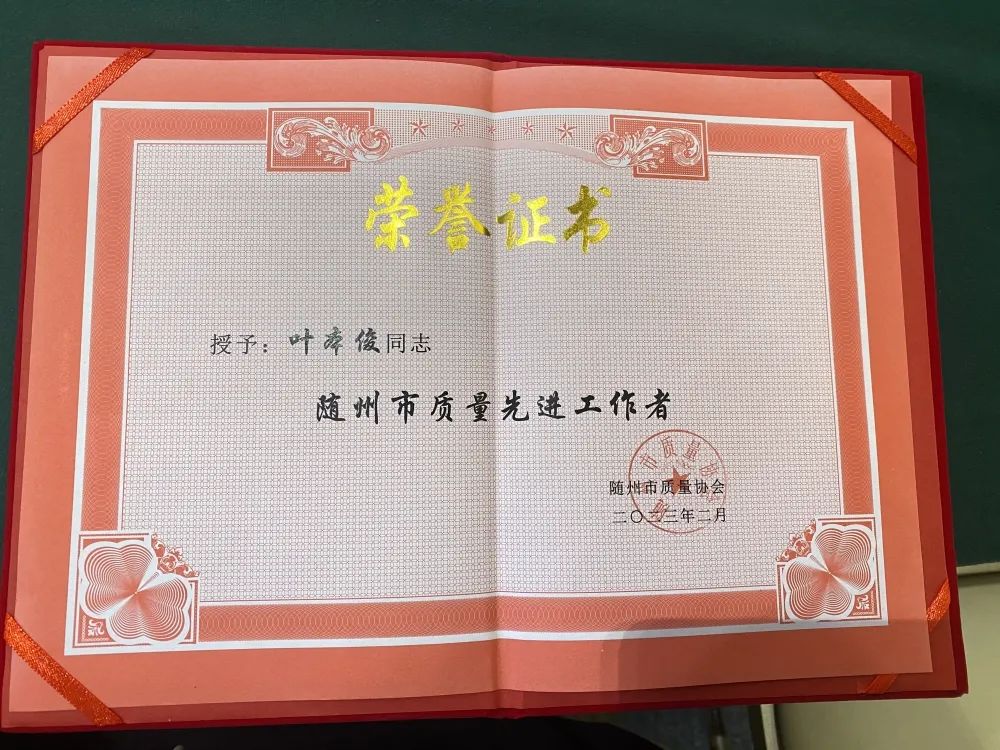 荣誉证书
授予：叶本俊同志
随州市质量先进工作者
市质量协
随州市质量协会
二〇二三年二月